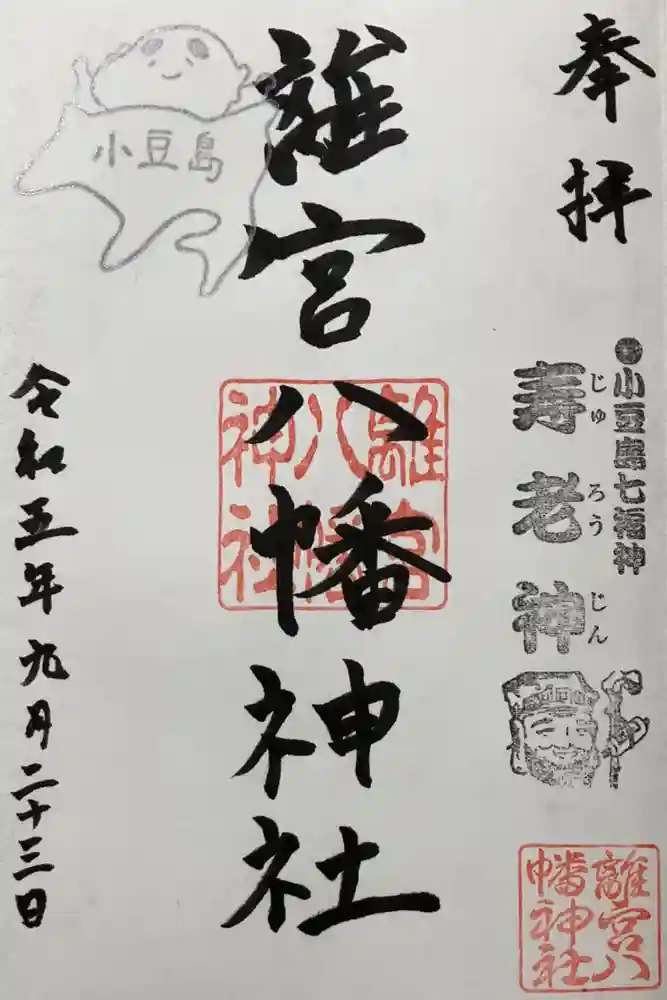 奉拝
●小豆島七福神
寿老神
じゅ ろう じん
離宮八幡神社
離宮八幡神社
離宮八幡神社
小豆島
令和五年九月二十三日